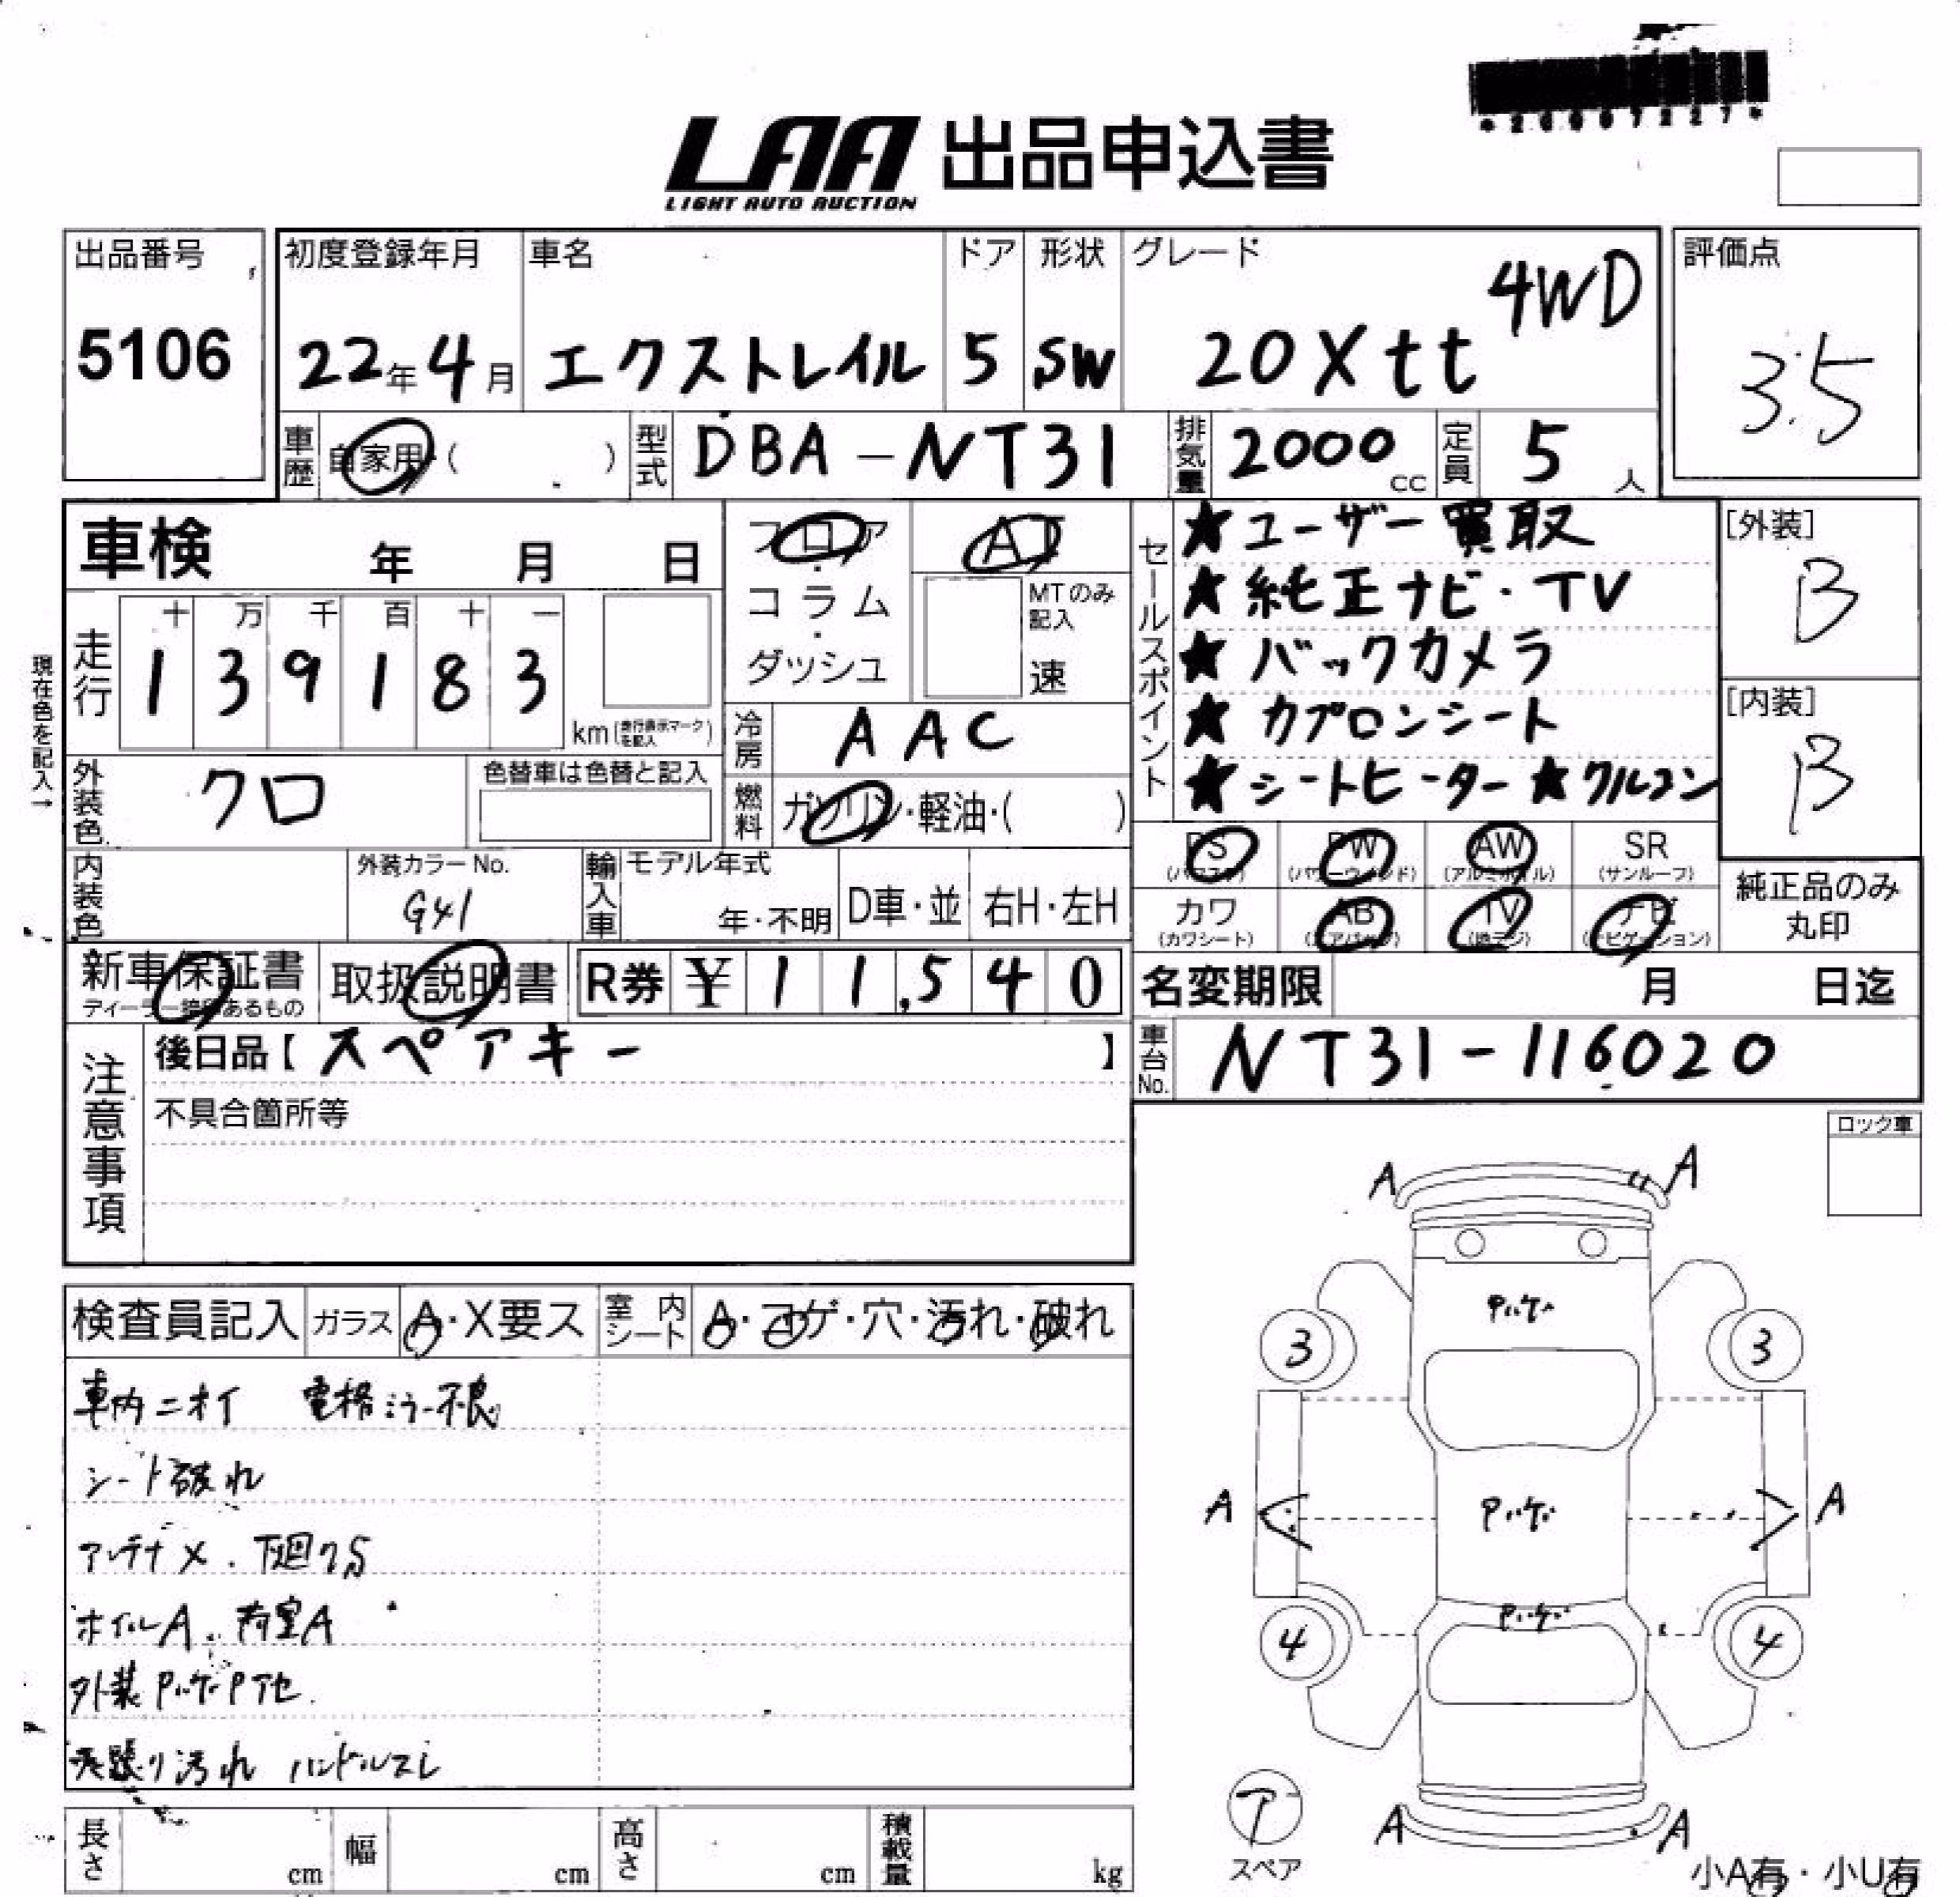 *26007227*
LAA 出品申込書
LIGHT AUTO AUCTION
出品番号
5106
初度登録年月
22年4月
車名
エクストレイル
ドア
5
形状
SW
グレード
20Xtt 4WD
評価点
3.5
車歴 自家用・( )
型式 DBA-NT31
排気量 2000cc
定員 5人
車検 年 月 日
フロア・コラム・ダッシュ
AT
MTのみ記入
速
セールスポイント
★ユーザー買取
★純正ナビ・TV
★バックカメラ
★カプロンシート
★シートヒーター★クルコン
[外装]
B
[内装]
B
現在色を記入→
走行
十 万 千 百 十 一
1 3 9 1 8 3
km(走行表示マークを記入)
冷房 AAC
外装色 クロ
色替車は色替と記入
燃料 ガソリン・軽油・( )
PS (パワステ)
PW (パワーウィンド)
AW (アルミホイル)
SR (サンルーフ)
カワ (カワシート)
AB (エアバッグ)
TV (地デジ)
ナビ (ナビゲーション)
純正品のみ丸印
内装色
外装カラーNo.
G41
輸入車
モデル年式
年・不明
D車・並
右H・左H
新車保証書
ディーラー捺印あるもの
取扱説明書
R券 ¥11,540
名変期限 月 日迄
注意事項
後日品【スペアキー】
不具合箇所等
車台No. NT31-116020
ロック車
検査員記入
ガラス A・X要ス
室内シート A・コゲ・穴・汚れ・破れ
車内ニオイ 電格ミラー不良
シート破れ
アンテナX.下廻クS
ホイルA.荷室A
外装Pボケ Pアセ
天張り汚れ ハンドルスレ
A A
Pボケ
3 3
A A
Pボケ
Pボケ
4 4
ア
スペア
A A
小A有・小U有
長さ cm
幅 cm
高さ cm
積載量 kg